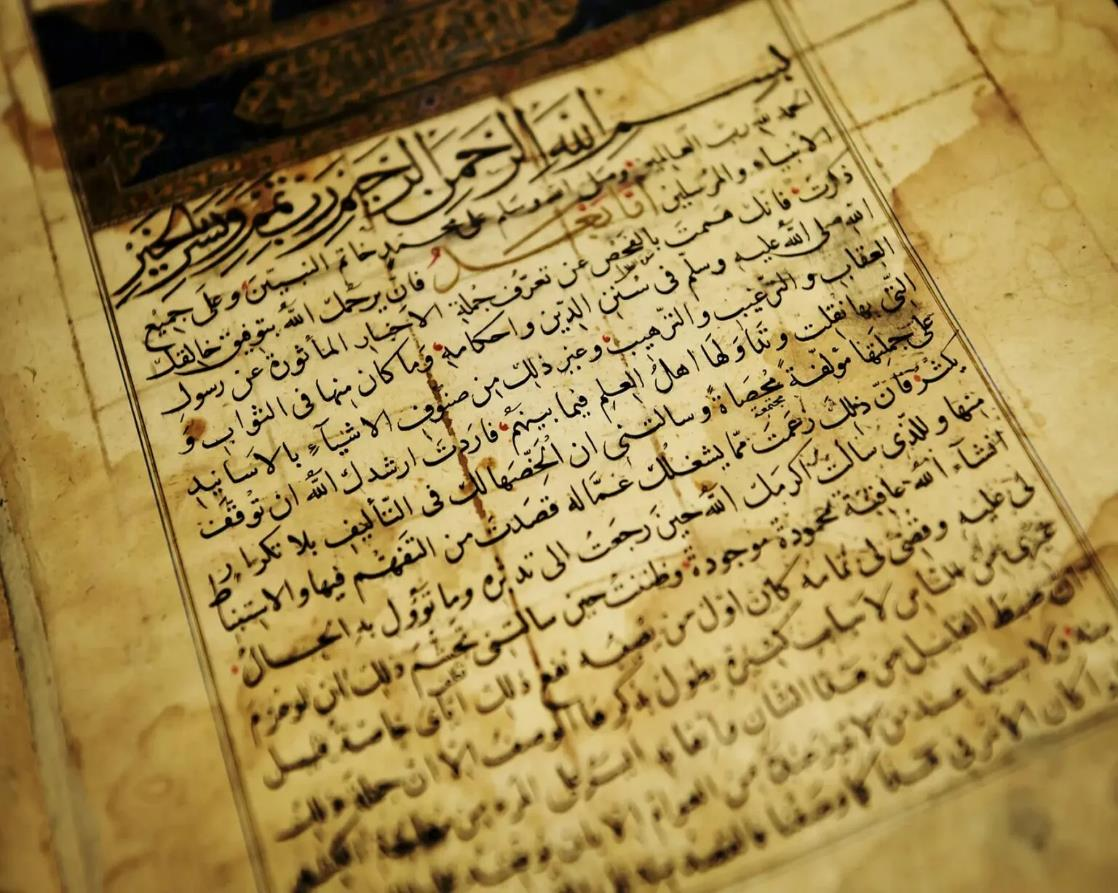 بسم الله الرحمن الرحيم رب تمم ويسر بالخير
الحمد لله رب العالمين وصلى الله وسلم على محمد خاتم النبيين وعلى جميع
الانبياء والمرسلين اما بعد فانك يرحمك الله بتوفيق خالقك
ذكرت فانك هممت بالفحص عن تعرف جملة الاخبار المأثورة عن رسول
الله صلى الله عليه وسلم فى سنن الدين واحكامه وما كان منها فى الثواب و
العقاب والترغيب والترهيب وغير ذلك من صنوف الاشياء بالاسانيد
التى بها نقلت وتداولها اهل العلم فيما بينهم فاردت ارشدك الله ان توقف
على جملتها مؤلفة محصاة وسالتنى ان الخصها لك فى التأليف بلا تكرار
يكثر فان ذلك زعمت مما يشغلك عما له قصدت من التفهم فيها والاستنباط
منها وللذى سالت اكرمك الله حين رجعت الى تدبره وما تؤول به الحال
انشاء الله عاقبة محمودة موجودة وظننت حين سالتنى تجشم ذلك ان لو عزم
لى عليه وقضى لى تمامه كان اول من يصيبه نفع ذلك اياى خاصة قبل
غيرى من الناس لاسباب كثيرة يطول بذكرها الوصف الا ان جملة ذلك
ان ضبط القليل من هذا الشان واتقانه ايسر على المرء من
منه ولا سيما عند من لا تمييز من العوام الا بان